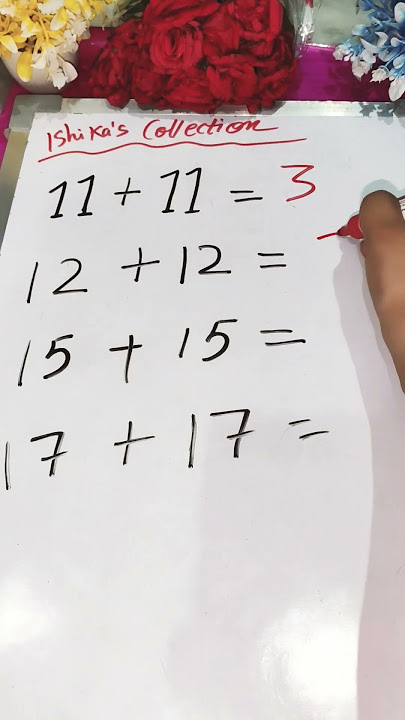 Ishika's Collection
11 + 11 = 3
12 + 12 =
15 + 15 =
17 + 17 =